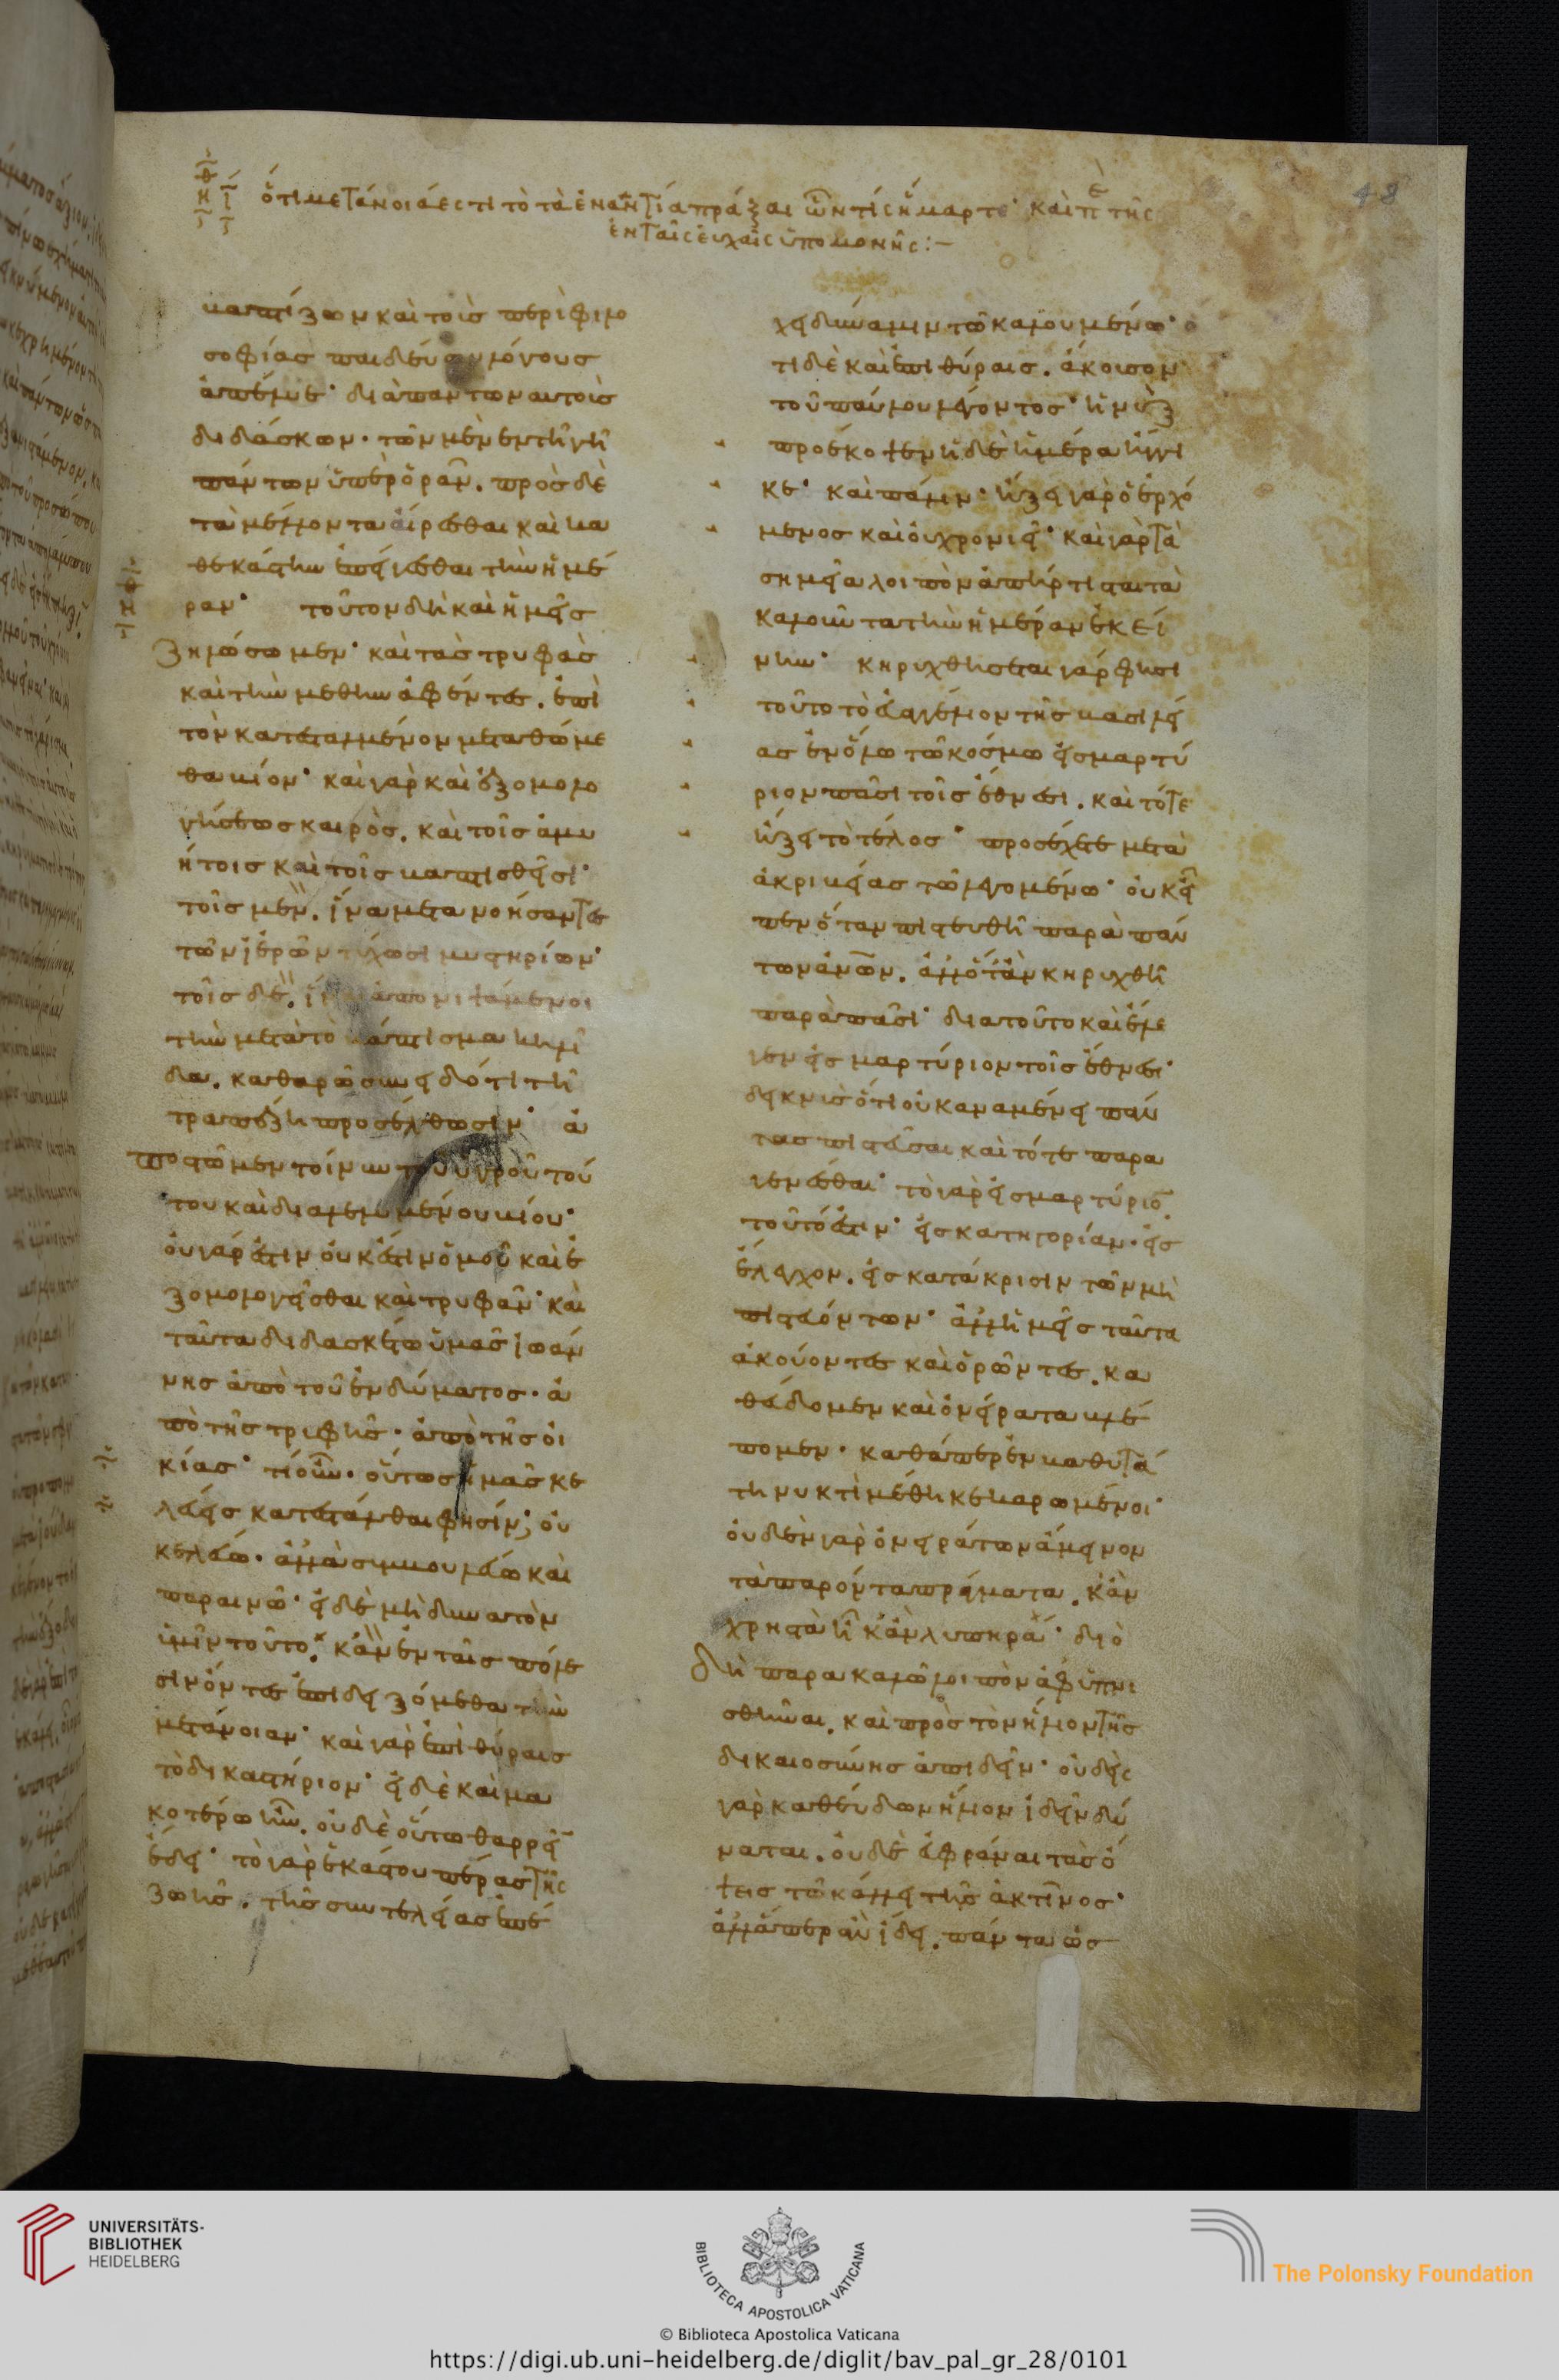 ὅτι μετάνοιά ἐστι τὸ τὰ ἐναντία πράξαι ὧν τίς ἥμαρτε· καὶ π τῆς
ἐν ταῖς εὐχαῖς ὑπομονῆς:-
48
βαπτίζων καὶ τοῖς περὶ φιλο
σοφίας παιδεύων λόγους
ἀπέλυε· διαπάντων αυτοὺς
διδάσκων· τῶν μὲν ἐν τῆ γῆ
πάντων ὑπερορᾶν. πρὸς δὲ
τὰ μέλλοντα αἴρεσθαι καὶ κα
θεκάστην ἐπείγεσθαι τὴν ἡμέ
ραν· τοῦτον δὴ καὶ ἡμεῖς
ζηλώσωμεν· καὶ τὰς τρυφὰς
καὶ τὴν μέθην ἀφέντες. ἐπὶ
τὸν κατεσταλμένον μεταθώμε
θα βίον· καὶ γὰρ καὶ ἐξομολο
γήσεως καιρὸς. καὶ τοῖς ἀμυ
ήτοις καὶ τοῖς βαπτισθεῖσι·
τοῖς μὲν. ἵνα μετανοήσαντες
τῶν ἱερῶν τύχωσι μυστηρίων·
τοῖς δὲ. ἵνα ἀπονιψάμενοι
τὴν μετὰ τὸ βάπτισμα κηλῖ
δα. καθαρῶ συνειδότι τῆ
τραπέζη προσέλθωσιν· ἀ
ποστῶμεν τοίνυν τοῦ ὑγροῦ τού
του καὶ διαλελυμένου βίου·
οὐ γάρ ἐστιν οὐκ ἔστιν ὁμοῦ καὶ ἐ
ξομολογεῖσθαι καὶ τρυφᾶν· καὶ
ταῦτα διδασκέτω ὑμᾶς ἰωάν
νης ἀπὸ τοῦ ἐνδύματος· ἀ
πὸ τῆς τροφῆς· ἀπὸ τῆς οἰ
κίας· τί οὖν· οὕτως ἡμᾶς κε
λεύεις κατεστάλθαι φησίν; οὐ
κελεύω. ἀλλὰ συμβουλεύω καὶ
παραινῶ· εἰ δὲ μὴ δυνατὸν
ὑμῖν τοῦτο. κἂν ἐν ταῖς πόλε
σιν ὄντες ἐπιδειξόμεθα τὴν
μετάνοιαν· καὶ γὰρ ἐπὶ θύραις
τὸ δικαστήριον· εἰ δὲ καὶ μα
κοτέρω ἦν. οὐδὲ οὕτω θαρρεῖν
ἔδει· τὸ γὰρ ἑκάστου πέρας τῆς
ζωῆς. τῆς συντελείας ἐπέ
χει δύναμιν τῶ καλουμένω· ὅ
τι δὲ καὶ ἐπι θύραις. ἄκουσον
τοῦ παύλου λέγοντος· ἡ νὺξ
προέκοψεν ἡ δὲ ἡμέρα ἤγγι
κε· καὶ πάλιν· ἥξει γὰρ ὁ ἐρχό
μενος καὶ οὐ χρονιεῖ· καὶ γὰρ τὰ
σημεῖα λοιπὸν ἀπήρτισται τὰ
καλοῦντα τὴν ἡμέραν ἐκεί
νην· κηρυχθήσεται γάρ φησι
τοῦτο τὸ εὐαγγέλιον τῆς βασιλεί
ας ἐν ὅλω τῶ κόσμω εἰς μαρτύ
ριον πᾶσι τοῖς ἔθνεσι. καὶ τότε
ἥξει τὸ τέλος· προσέχετε μετὰ
ἀκριβείας τῶ λεγομένω· οὐκ εἶ
πεν ὅταν πιστευθῆ παρὰ πάν
των ἀν̅ων. ἀλλ' ὅταν κηρυχθῆ
παρὰ πᾶσι· δια τοῦτο καὶ ἔλε
γεν εἰς μαρτύριον τοῖς ἔθνεσι·
δεικνὺς ὅτι οὐκ αναμένει πάν
τας πιστεῦσαι καὶ τότε παρα
γενέσθαι· τὸ γὰρ εἰς μαρτύριο̅
τοῦτό ἐστιν· εἰς κατηγορίαν. εἰς
ἔλεγχον. εἰς κατάκρισιν τῶν μὴ
πιστευόντων· ἀλλ' ἡμεῖς ταῦτα
ἀκούοντες καὶ ὁρῶντες. κα
θεύδομεν καὶ ὀνείρατα βλέ
πομεν· καθάπερ ἐν βαθυτά
τη νυκτὶ μέθη κεκαρωμένοι·
οὐδὲν γὰρ ὀνειράτων ἄμεινον
τὰ παρόντα πράγματα. κἂν
χρηστὰ ῆ κἂν λυπηρά· διὸ
δὴ παρακαλῶ λοιπὸν ἀφυπνι
σθῆναι. καὶ πρὸς τὸν ἥλιον τῆς
δικαιοσύνης ἀπιδεῖν· οὐδεὶς
γὰρ καθεύδων ἥλιον ἰδεῖν δύ
ναται. οὐδὲ εὐφράναι τὰς ὄ
ψεις τῶ κάλλει τῆς ἀκτῖνος·
ἀλλ' ἅπερ ἂν ἴδη. πάντα ὡς
UNIVERSITÄTS-
BIBLIOTHEK
HEIDELBERG
BIBLIOTECA APOSTOLICA VATICANA
The Polonsky Foundation
© Biblioteca Apostolica Vaticana
https://digi.ub.uni-heidelberg.de/diglit/bav_pal_gr_28/0101